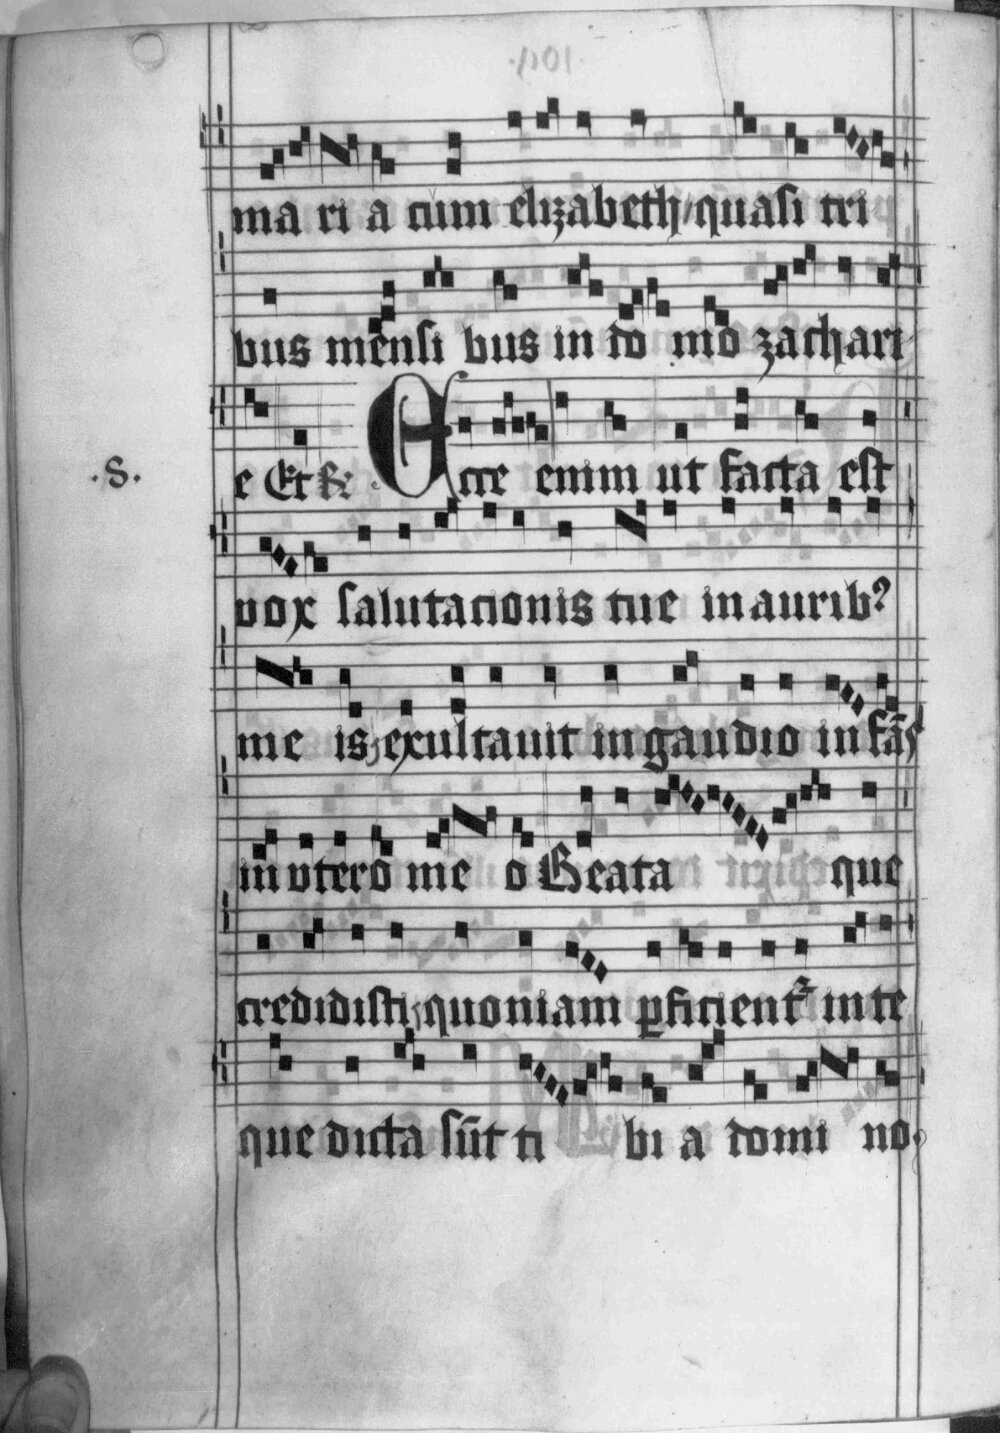 ma ri a cum elizabeth quasi tri
bus mēnsi bus in do mo zachari
e Et Ecce enim ut facta est
.S.
vox salutacionis tue in aurib?
me is exultauit in gaudio infās
in vtero me o Beata que
credidisti quoniam ꝑficient in te
que dicta sūt ti bi a domi no